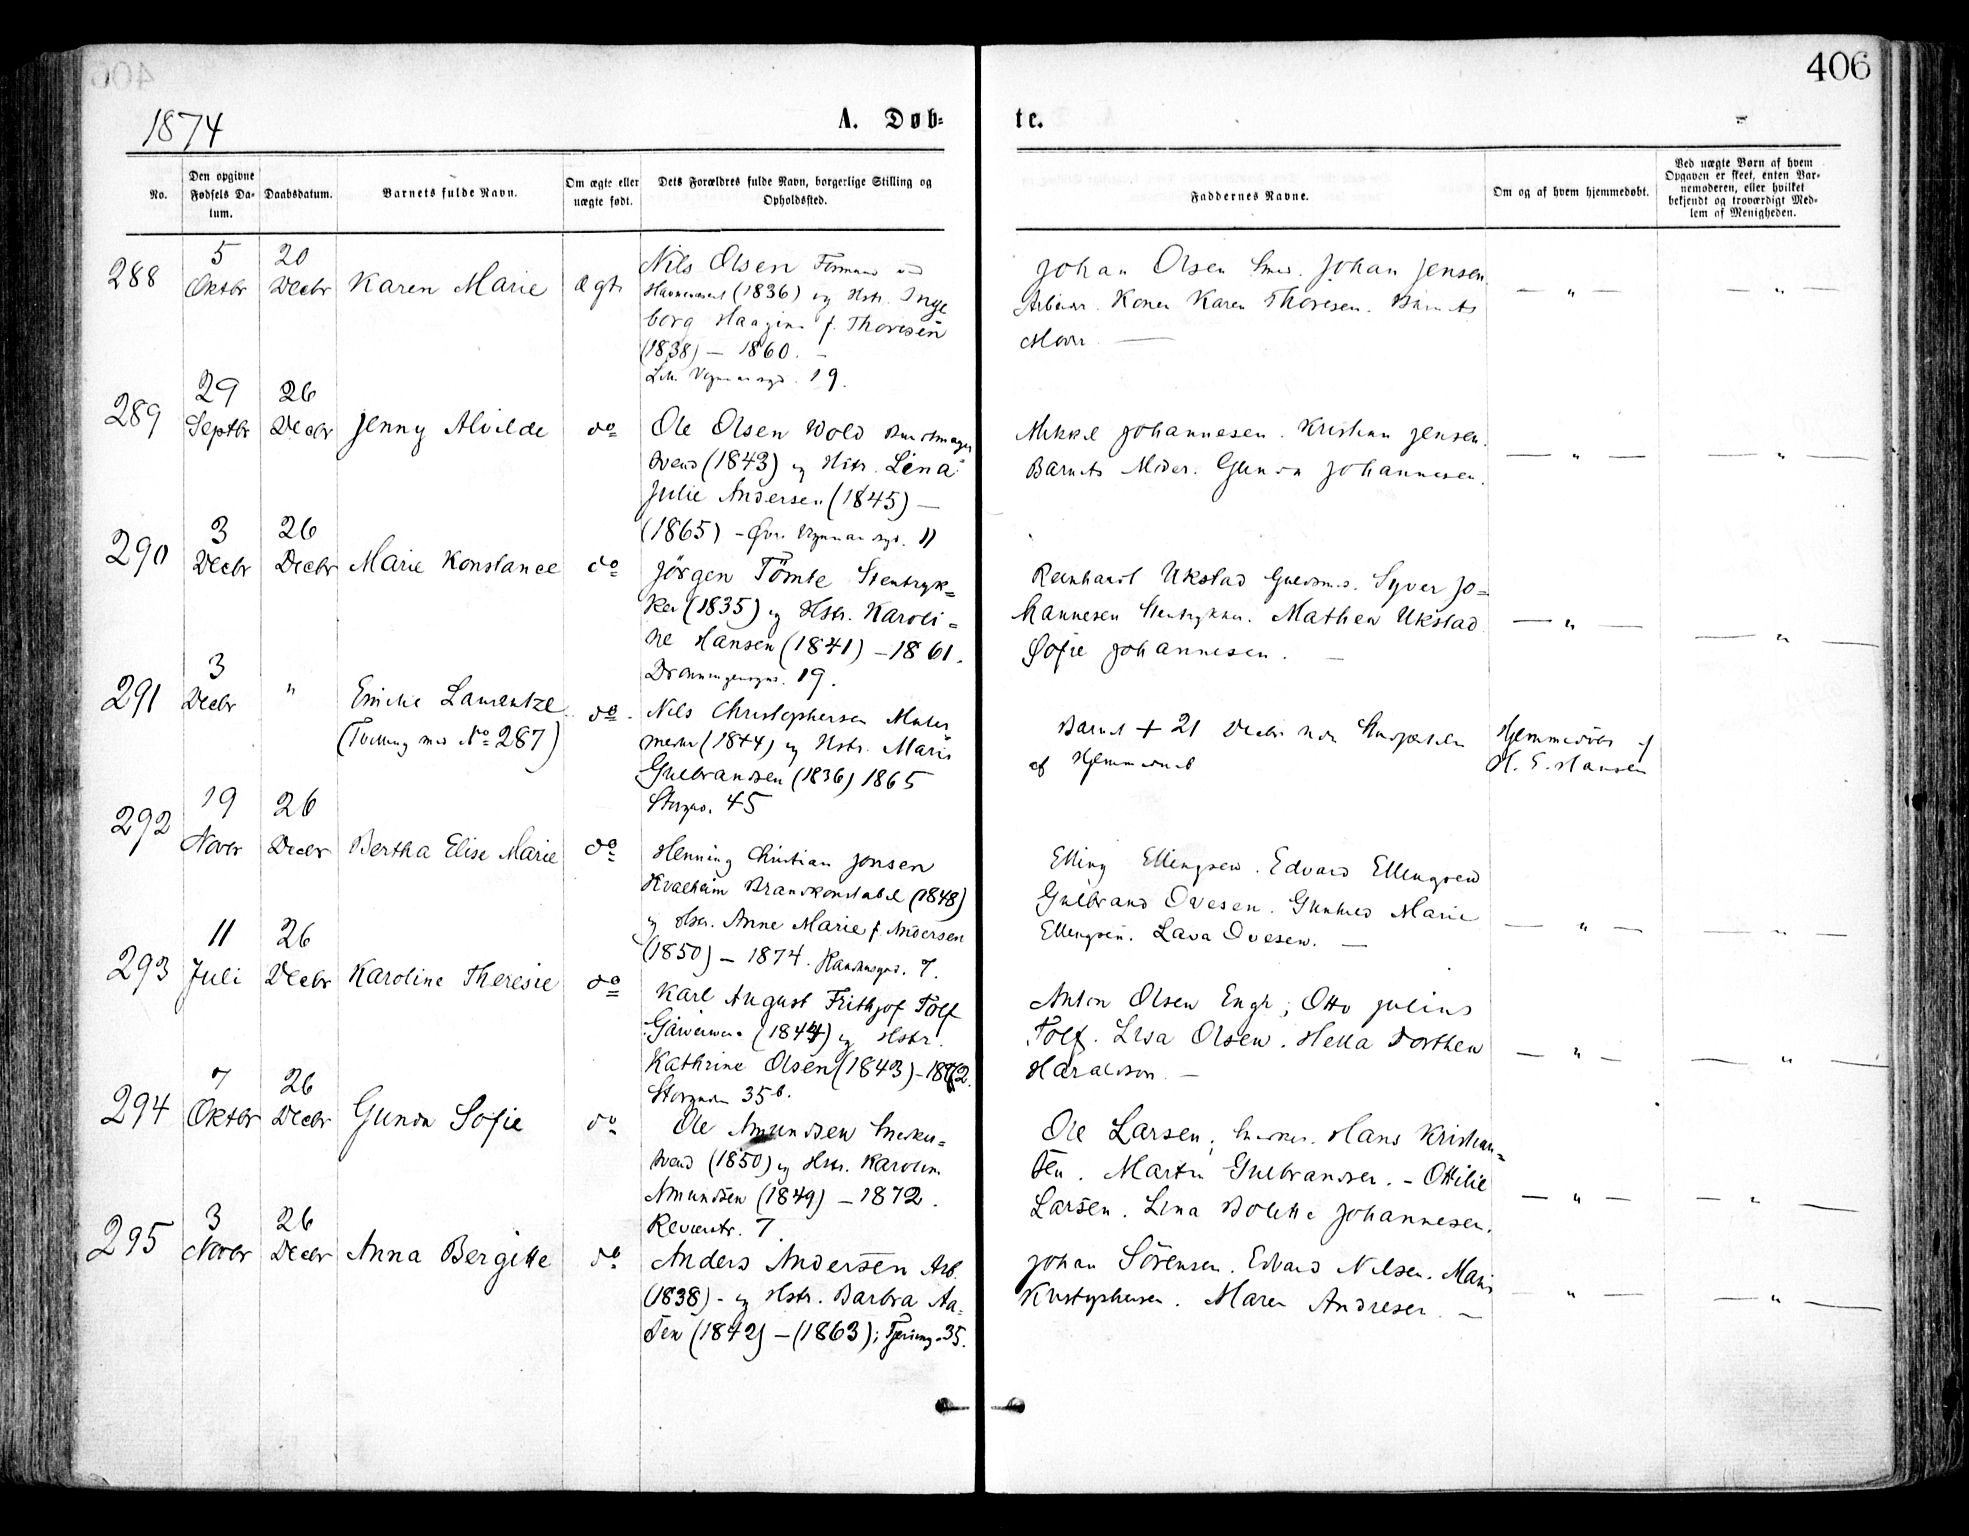 406
1874
A. Døb-
te.
No.
Den opgivne Fødsels Da-
tum.
Daabsdatum.
Barnets fulde Navn.
Om ægte eller
uægte født.
Dets Forældres fulde Navn, borgerlige Stilling og
Opholdssted.
Faddernes Navne.
Om og af hvem hjemmedøbt.
Ved uægte Børn af hvem
Opgaven er skeet, enten Bar-
nemoderen, eller hvilket
bekjendt og troværdigt Med-
lem af Menigheden.
288
5
Oktbr
20
Decbr
Karen Marie
Ægte
Nils Olsen Formand ved
(1836) og Hstr. Inge
borg Haagine f. Thoresen
(1838) — 1860. —
19.
Johan Olsen Smed. Johan Jensen
Arbeider. Konen Karen Thoresen. Barnets
Moder —
— " —
— " —
289
29
Septbr
26
Decbr
Jenny Alvilde
do
Ole Olsen Wold
svend (1843) og Hstr. Lina
Julie Andersen (1845) —
(1865) — Øvre 11
Mikkel Johannesen. Kristian Jensen.
Barnets Moder. Gunda Johannesen.
— " —
— " —
290
3
Decbr
26
Decbr
Marie Konstance
do
Jörgen Tömte Stentryk=
ker (1835) og Hstr. Karoli=
ne Hansen (1841) — 1861.
Dronningensgd. 19.
Reinhardt Ukstad Guldsmed. Syver Jo=
hannesen Stentrykker. Mathea Ukstad
Sofie Johannesen. —
— " —
— " —
291
3
Decbr
"
Emilie Laurentze
(Tvilling med No 287)
do
Nils Christophersen Maler
mester (1844) og Hstr. Marie
Gulbrandsen (1836) 1865
Storgd. 45
Barnet + 21 Decbr
af Hjemmedaab
Hjemmedøbt af
H. E. Hansen
292
19
Novbr
26
Decbr
Bertha Elise Marie
do
Henning Christian Jonsen
Kvalheim Brandkonstabel (1848)
og Hstr. Anne Marie f. Andersen
(1850) — 1874. 7.
Elling Ellingsen. Edvard Ellingsen
Gulbrand Ovesen. Gunhild Marie
Ellingsen. Lava Ovesen. —
— " —
— " —
293
11
Juli
26
Decbr
Karoline Theresie
do
Karl August Frithjof Tolf
(1844) og Hstr.
Kathrine Olsen (1843) — 1872.
Storgaden 35b.
Anton Olsen Engh; Otto Julius
Tolf. Lisa Olsen. Hella Dorthea
Haraldson. —
— " —
— " —
294
7
Oktbr
26
Decbr
Gunda Sofie
do
Ole Amundsen Snedker=
svend (1850) og Hstr. Karoline
Amundsen (1849) — 1872.
Reverstr. 7.
Ole Larsen, Snedker. Hans Kristian=
sen. Martin Gulbrandsen. — Ottilie
Larsen. Lina Bolette Johannesen.
— " —
— " —
295
3
Novbr
26
Decbr
Anna Bergitte
do
Anders Andersen Arb.
(1838) — og Hstr. Barbra Aa=
sen (1842) — (1863); 35.
Johan Sörensen. Edvard Nilsen. Marie
Kristophersen. Maren Andresen. —
"
— " —